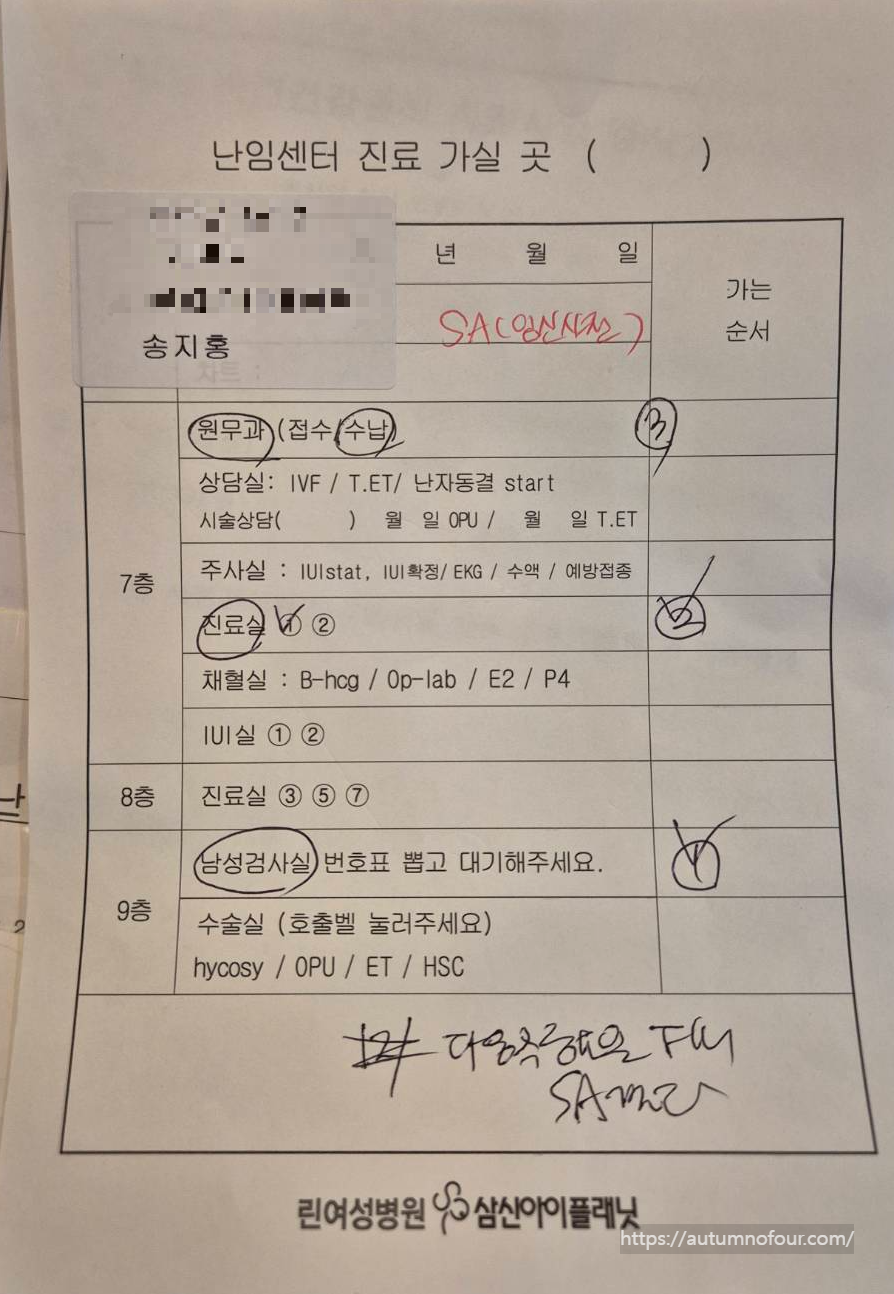 난임센터 진료 가실 곳 (      )
년 월 일
가는
순서
송지홍
SA(임신사전)
차트 :
7층
원무과 (접수/수납) 3
상담실: IVF / T.ET/ 난자동결 start
시술상담(      ) 월 일 OPU / 월 일 T.ET
주사실 : IUIstat, IUI확정/ EKG / 수액 / 예방접종
진료실 ① ② 2
채혈실 : B-hcg / Op-lab / E2 / P4
IUI실 ① ②
8층
진료실 ③ ⑤ ⑦
9층
남성검사실 번호표 뽑고 대기해주세요. 1
수술실 (호출벨 눌러주세요)
hycosy / OPU / ET / HSC
# 다음주 F/U
SA
린여성병원 삼신아이플래닛
https://autumnofour.com/